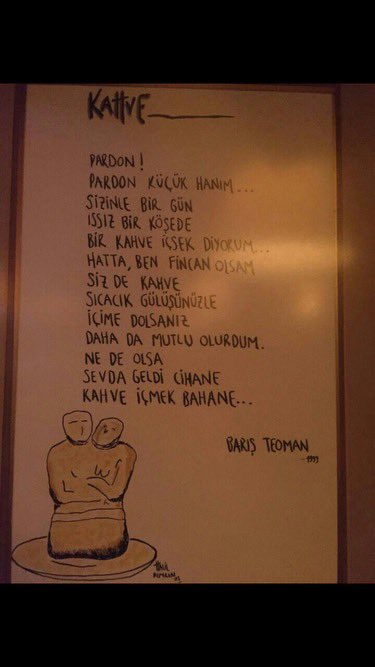 KAHVE
PARDON!
PARDON KÜÇÜK HANIM...
SİZİNLE BİR GÜN
ISSIZ BİR KÖŞEDE
BİR KAHVE İÇSEK DİYORUM...
HATTA, BEN FİNCAN OLSAM
SİZ DE KAHVE
SICACIK GÜLÜŞÜNÜZLE
İÇİME DOLSANIZ
DAHA DA MUTLU OLURDUM.
NE DE OLSA
SEVDA GELDİ CİHANE
KAHVE İÇMEK BAHANE...
BARIŞ TEOMAN